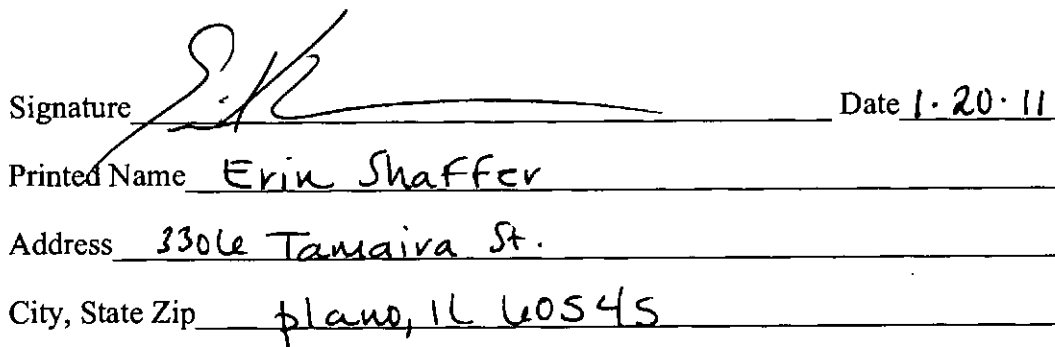 Signature Date 1.20.11
Printed Name Erin Shaffer
Address 3306 Tamaira St.
City, State Zip plano, IL 60545